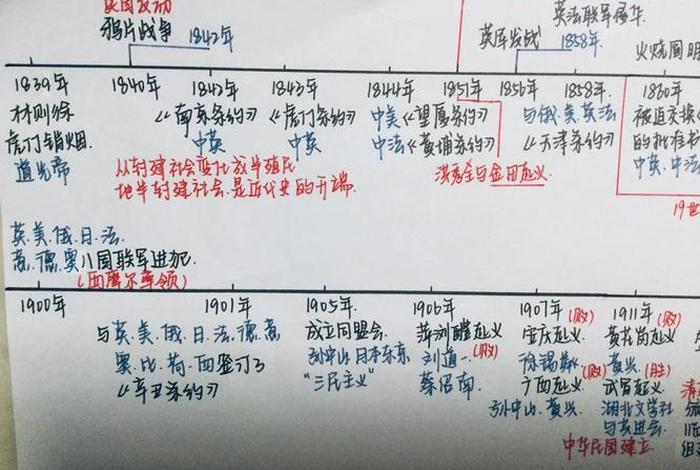 英国发动
鸦片战争
1842年
英军发战
1858年
英法联军侵华
火烧圆明
1839年
1840年
1842年
1843年
1844年
1851年
1856年
1858年
1860年
林则徐
虎门销烟
道光帝
《南京条约》
中英
《虎门条约》
中英
中美《望厦条约》
中法《黄埔条约》
洪秀全与金田起义
与俄.美.英法
《天津条约》
被迫交换《
的批准书
中英.中法
从封建社会变化成半殖民
地半封建社会.是近代史的开端.
19世
英.美.俄.日.法.
意.德.奥八国联军进犯.
(西摩尔率领)
1900年
1901年
1905年
1906年
1907年(败)
1911年(败)
与英.美.俄.日.法.德.意
奥.比.荷.西签订了
《辛丑条约》
成立同盟会.
孙中山.日本东京
"三民主义"
萍浏醴起义
刘道一(败)
蔡绍南
安庆起义
徐锡麟(败)
广西起义
孙中山.黄兴
黄花岗起义
黄兴(胜)
武昌起义
湖北文学社
与共进会.
中华民国建立.